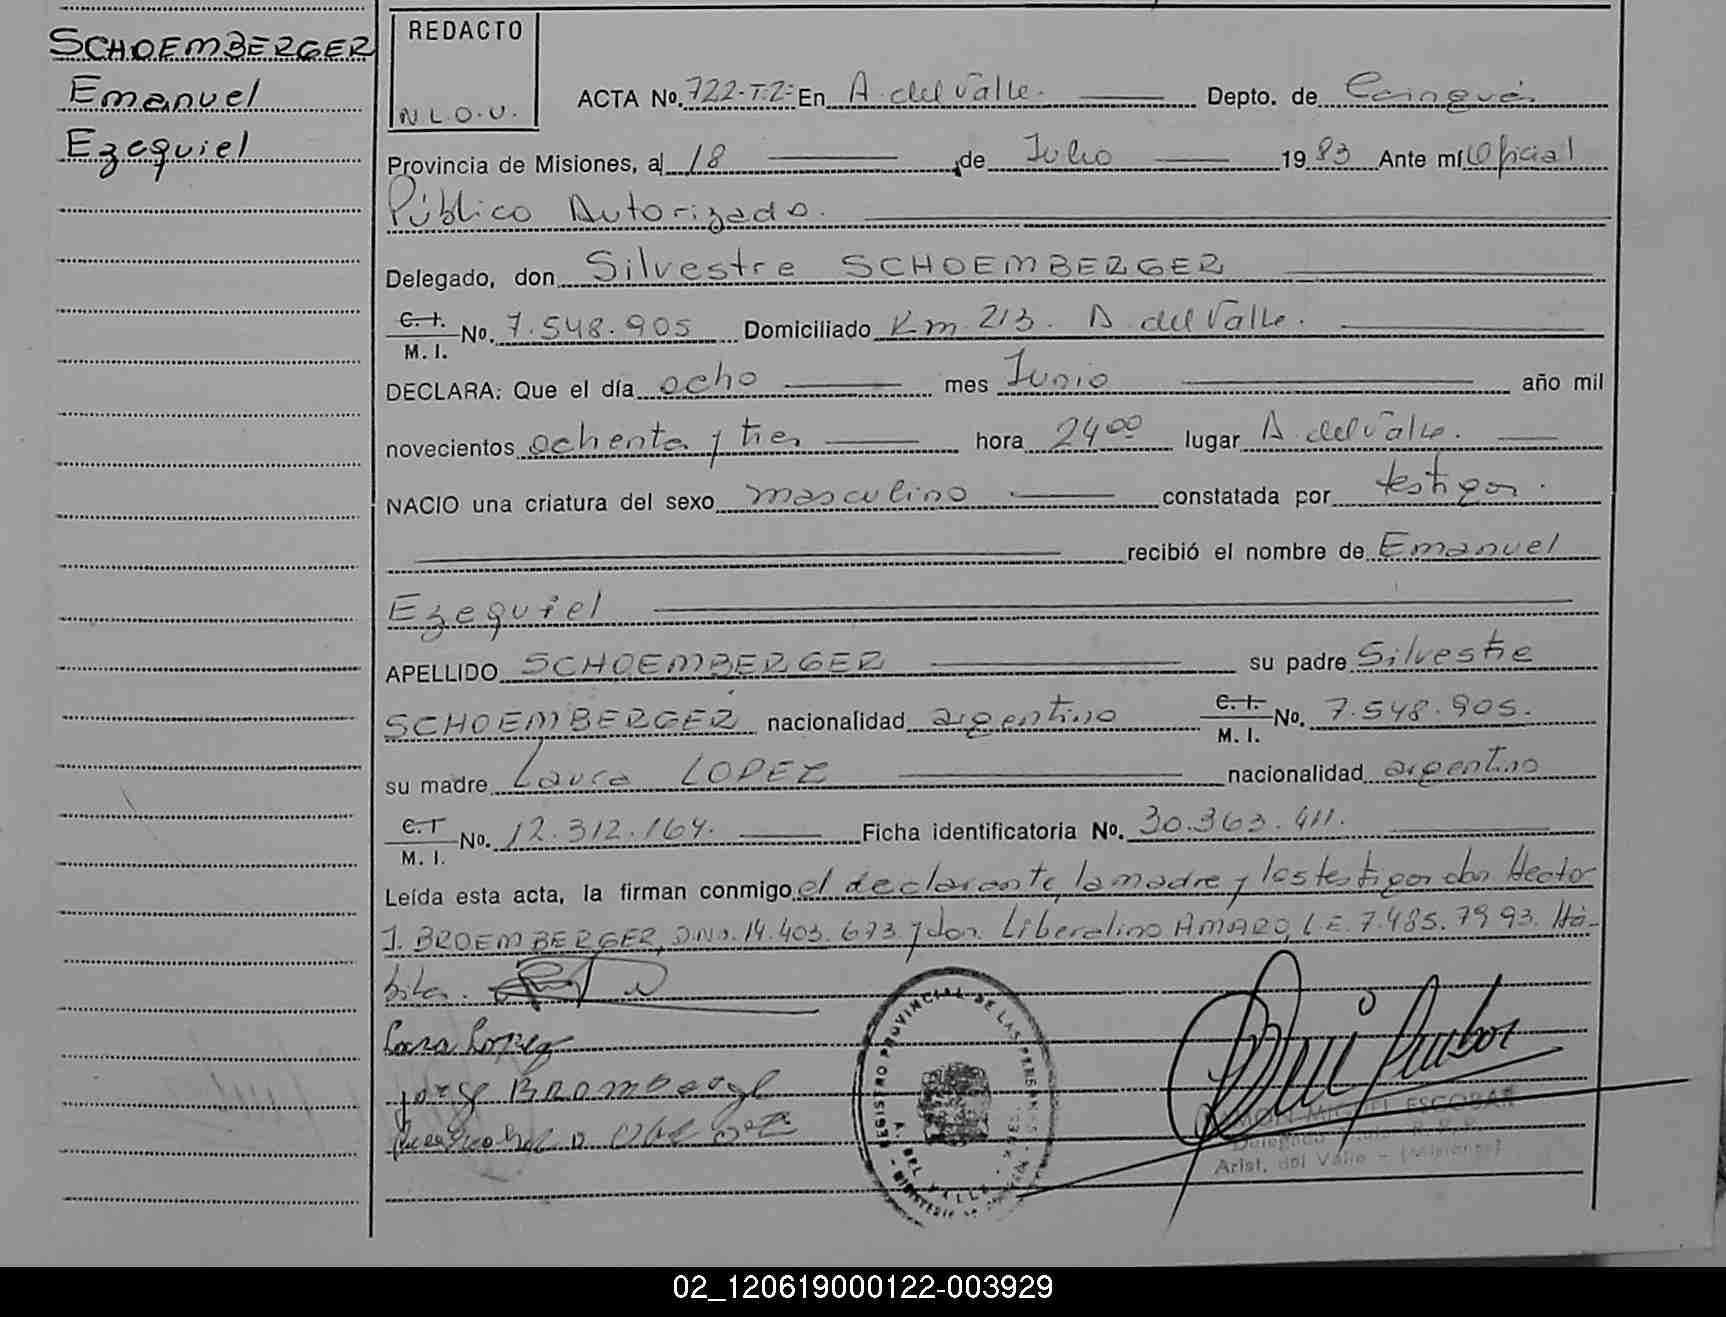 SCHOEMBERGER
Emanuel
Ezequiel
REDACTO
N.L.O.V.
ACTA No. 722-T.2- En A. del Valle. Depto. de Cainguás
Provincia de Misiones, al 18 de Julio 1983 Ante mí Oficial
Público Autorizado.
Delegado, don Silvestre SCHOEMBERGER
C.I. M.I. No. 7.548.905 Domiciliado Km. 213. A. del Valle.
DECLARA: Que el día ocho mes Junio año mil
novecientos ochenta y tres hora 24°° lugar A. del Valle.
NACIO una criatura del sexo masculino constatada por testigos.
recibió el nombre de Emanuel
Ezequiel
APELLIDO SCHOEMBERGER su padre Silvestre
SCHOEMBERGER nacionalidad argentino C.I. M.I. No. 7.548.905.
su madre Laura LOPEZ nacionalidad argentino
C.I M.I. No. 12.312.164. Ficha identificatoria No. 30.363.411.
Leída esta acta, la firman conmigo el declarante, la madre y los testigos don Hector
J. BROEMBERGER, D.N.I. 14.403.673 y don Liberalino AMARO, L.E. 7.485.7993. Há-
biles.
Lopez
Jorge
REGISTRO PROVINCIAL DE LAS PERSONAS
A. DEL VALLE
MINISTERIO DE
RAMON MIGUEL ESCOBAR
Delegado
Arist. del Valle - (Misiones)
02_120619000122-003929